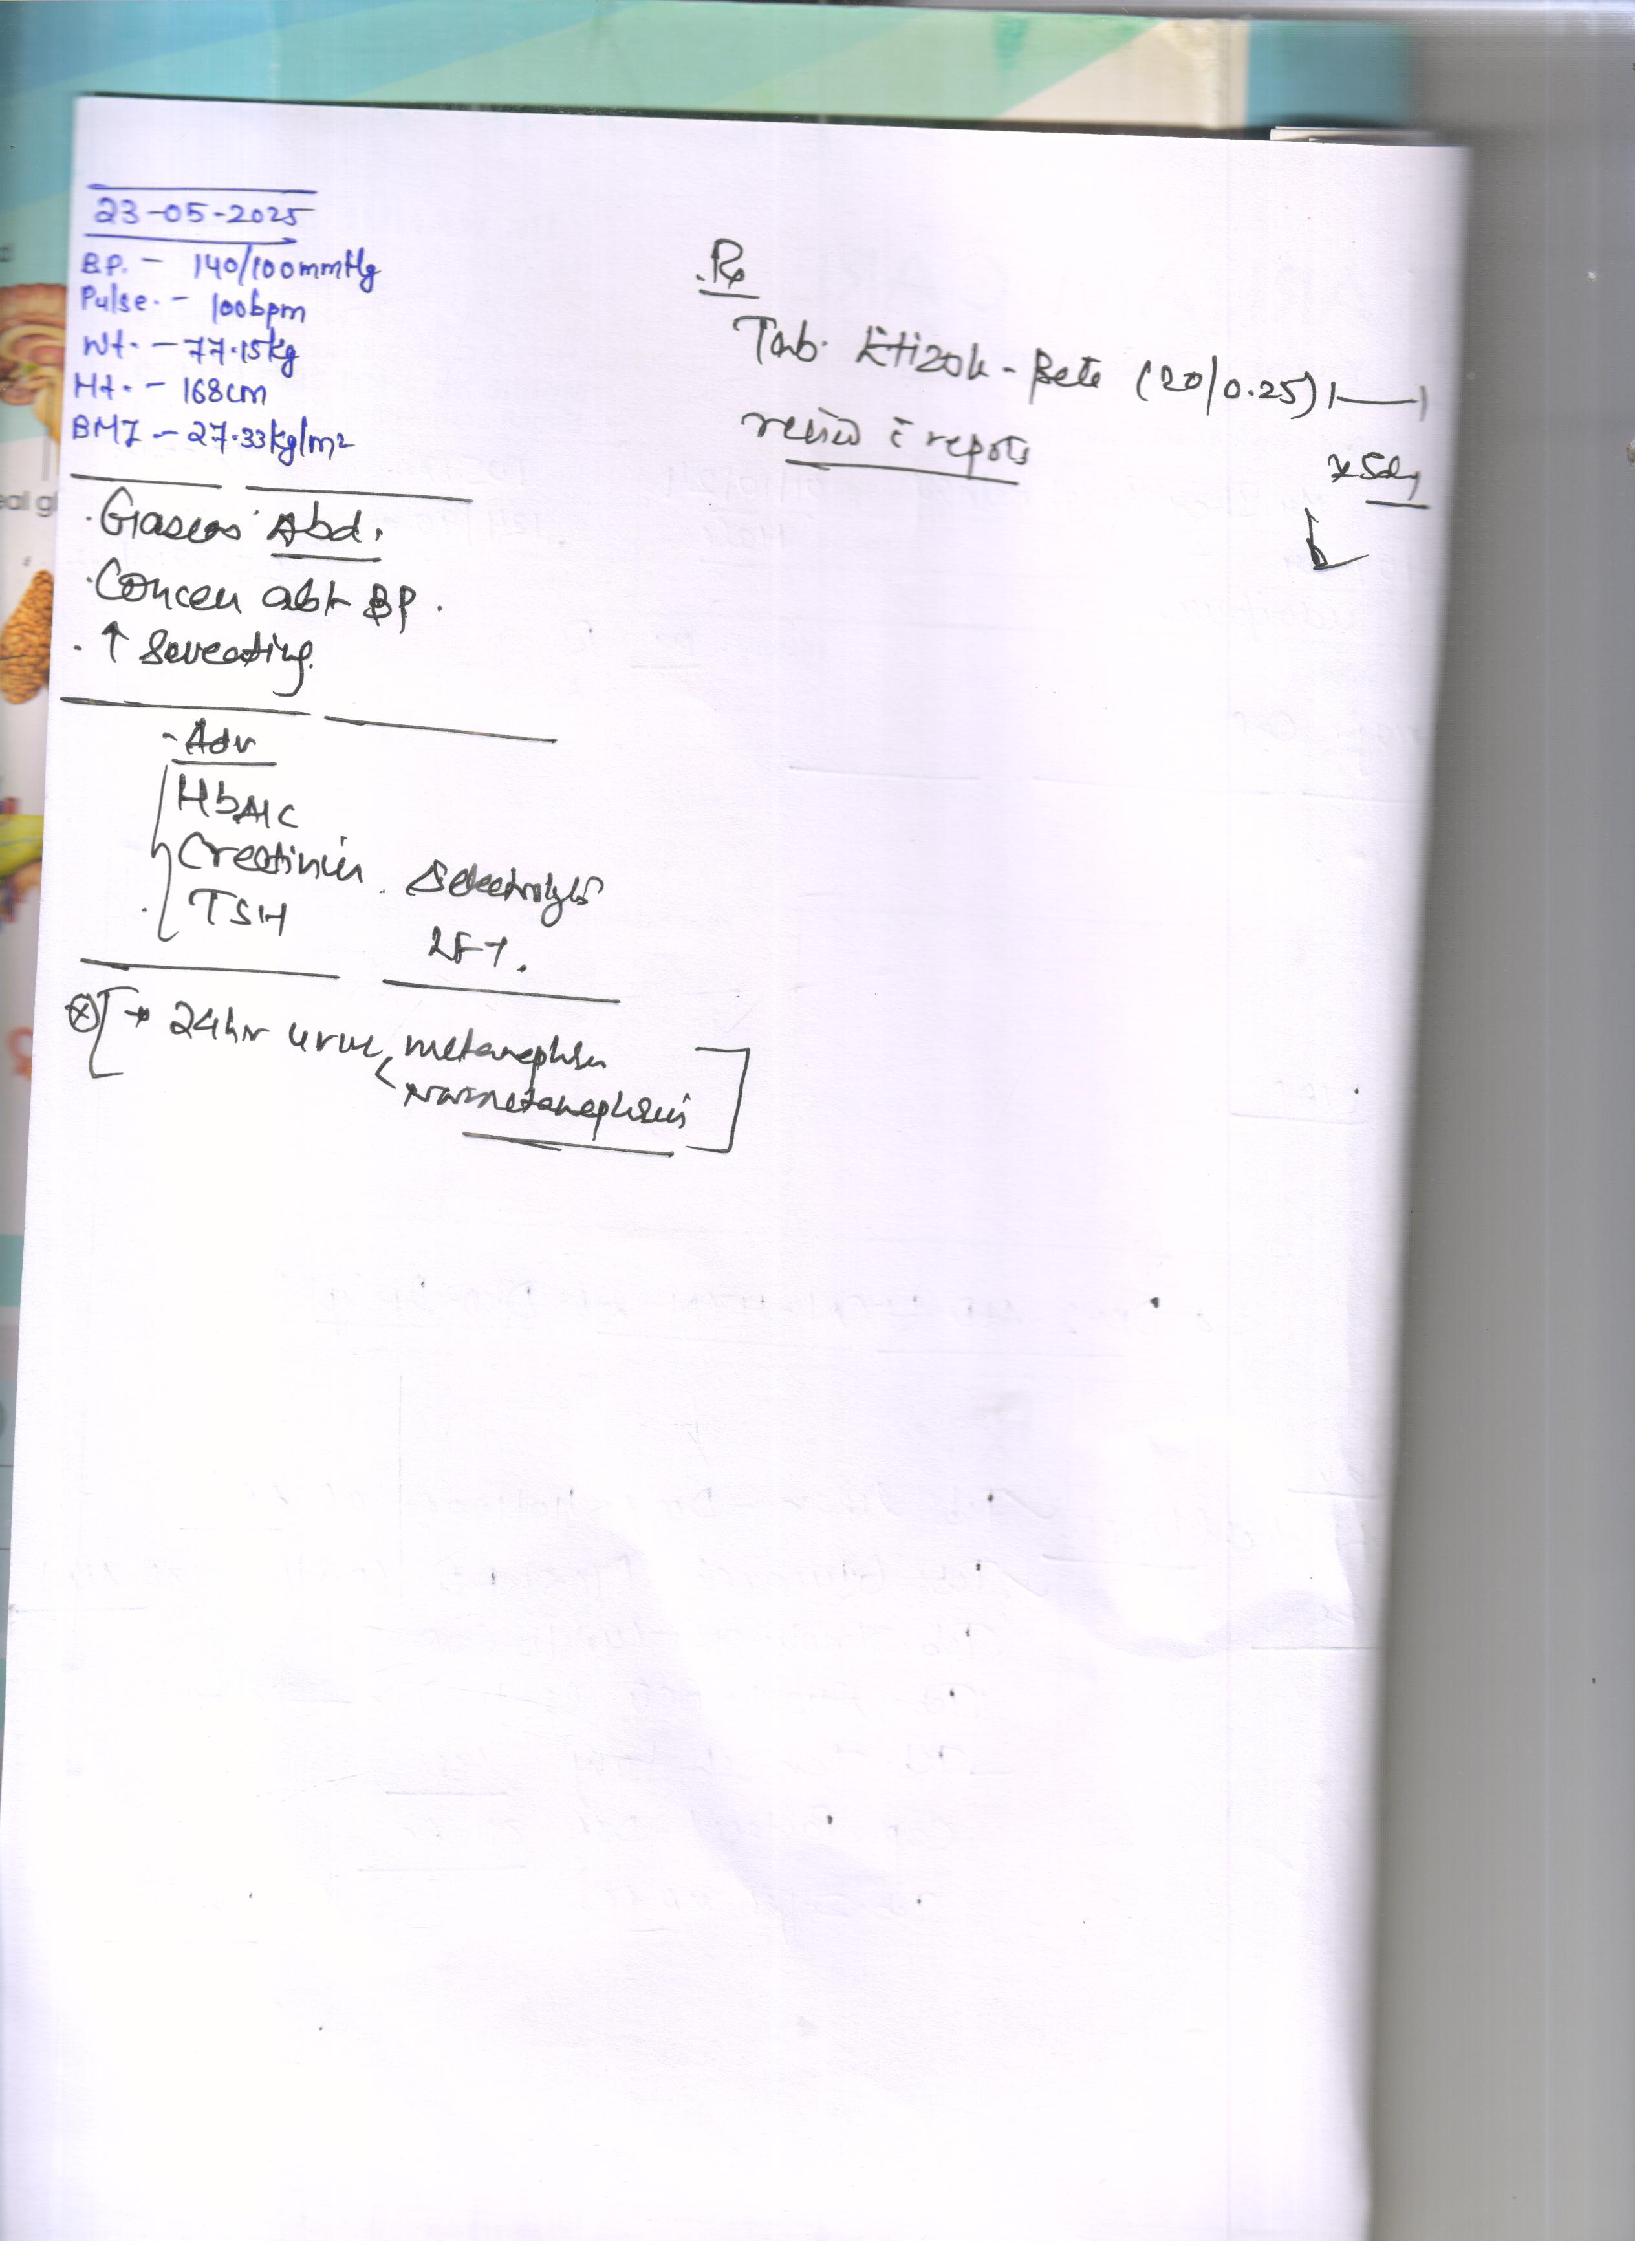 23-05-2025
B.P. - 140/100mmHg
Pulse. - 100bpm
Wt. - 77.15kg
Ht. - 168cm
BMI - 27.33kg/m2
Rx
Tab. Etizola - Beta (20/0.25) 1——1
x 5day
review c̄ reports
Abd.
Concern abt BP.
↑ Sweating.
- Adv
HbA1C
Creatinin. S electrolytes
TSH
LFT.
→ 24hr urine metanephrin
normetanephrin